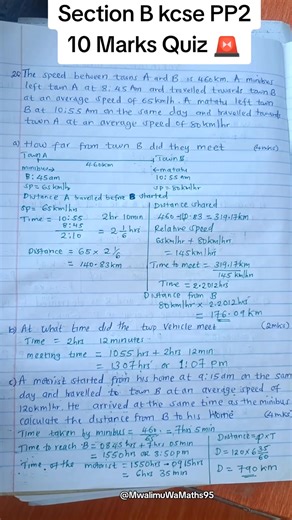 Section B kcse PP2
10 Marks Quiz 🚨
20 The speed between towns A and B is 460km. A minibus
left town A at 8.45am and travelled towards town B
at an average speed of 65km/h. A matatu left town
B at 10:55am on the same day and travelled towards
town A at an average speed of 80km/hr
a) How far from town B did they meet (4mks)
Town A Town B
460km
minibus matatu
8:45am 10:55am
SP=65km/hr SP=80km/hr
Distance A travelled before B started
SP=65km/hr
Time = 10:55 2hr 10min
8:45 = 2 1/6 hrs
2:10
Distance = 65 x 2 1/6
= 140.83km
Distance shared
460-140.83=319.17km
Relative speed
65km/hr + 80km/hr
= 145km/hr
Time to meet = 319.17km
145km/hr
Time = 2.2012hrs
Distance from B
80km/hr x 2.2012hrs
= 176.09km
b) At what time did the two vehicle meet (2mks)
Time = 2hrs 12minutes
meeting time = 1055hrs + 2hrs 12min
= 1307hrs or 1:07pm
c) A motorist started from his home at 9:15am on the same
day and travelled to town B at an average speed of
120km/hr. He arrived at the same time as the minibus
calculate the distance from B to his Home (4mks)
Time taken by minibus = 460 = 7hrs 5min
65
Time to reach B = 0845hrs + 7hrs 05min
= 1550hrs or 3:50pm
Time of the motorist = 1550hrs - 0915hrs
= 6hrs 35min
Distance = SPxT
D = 120 x 6 35/60
D = 790km
@MwalimuWaMaths95